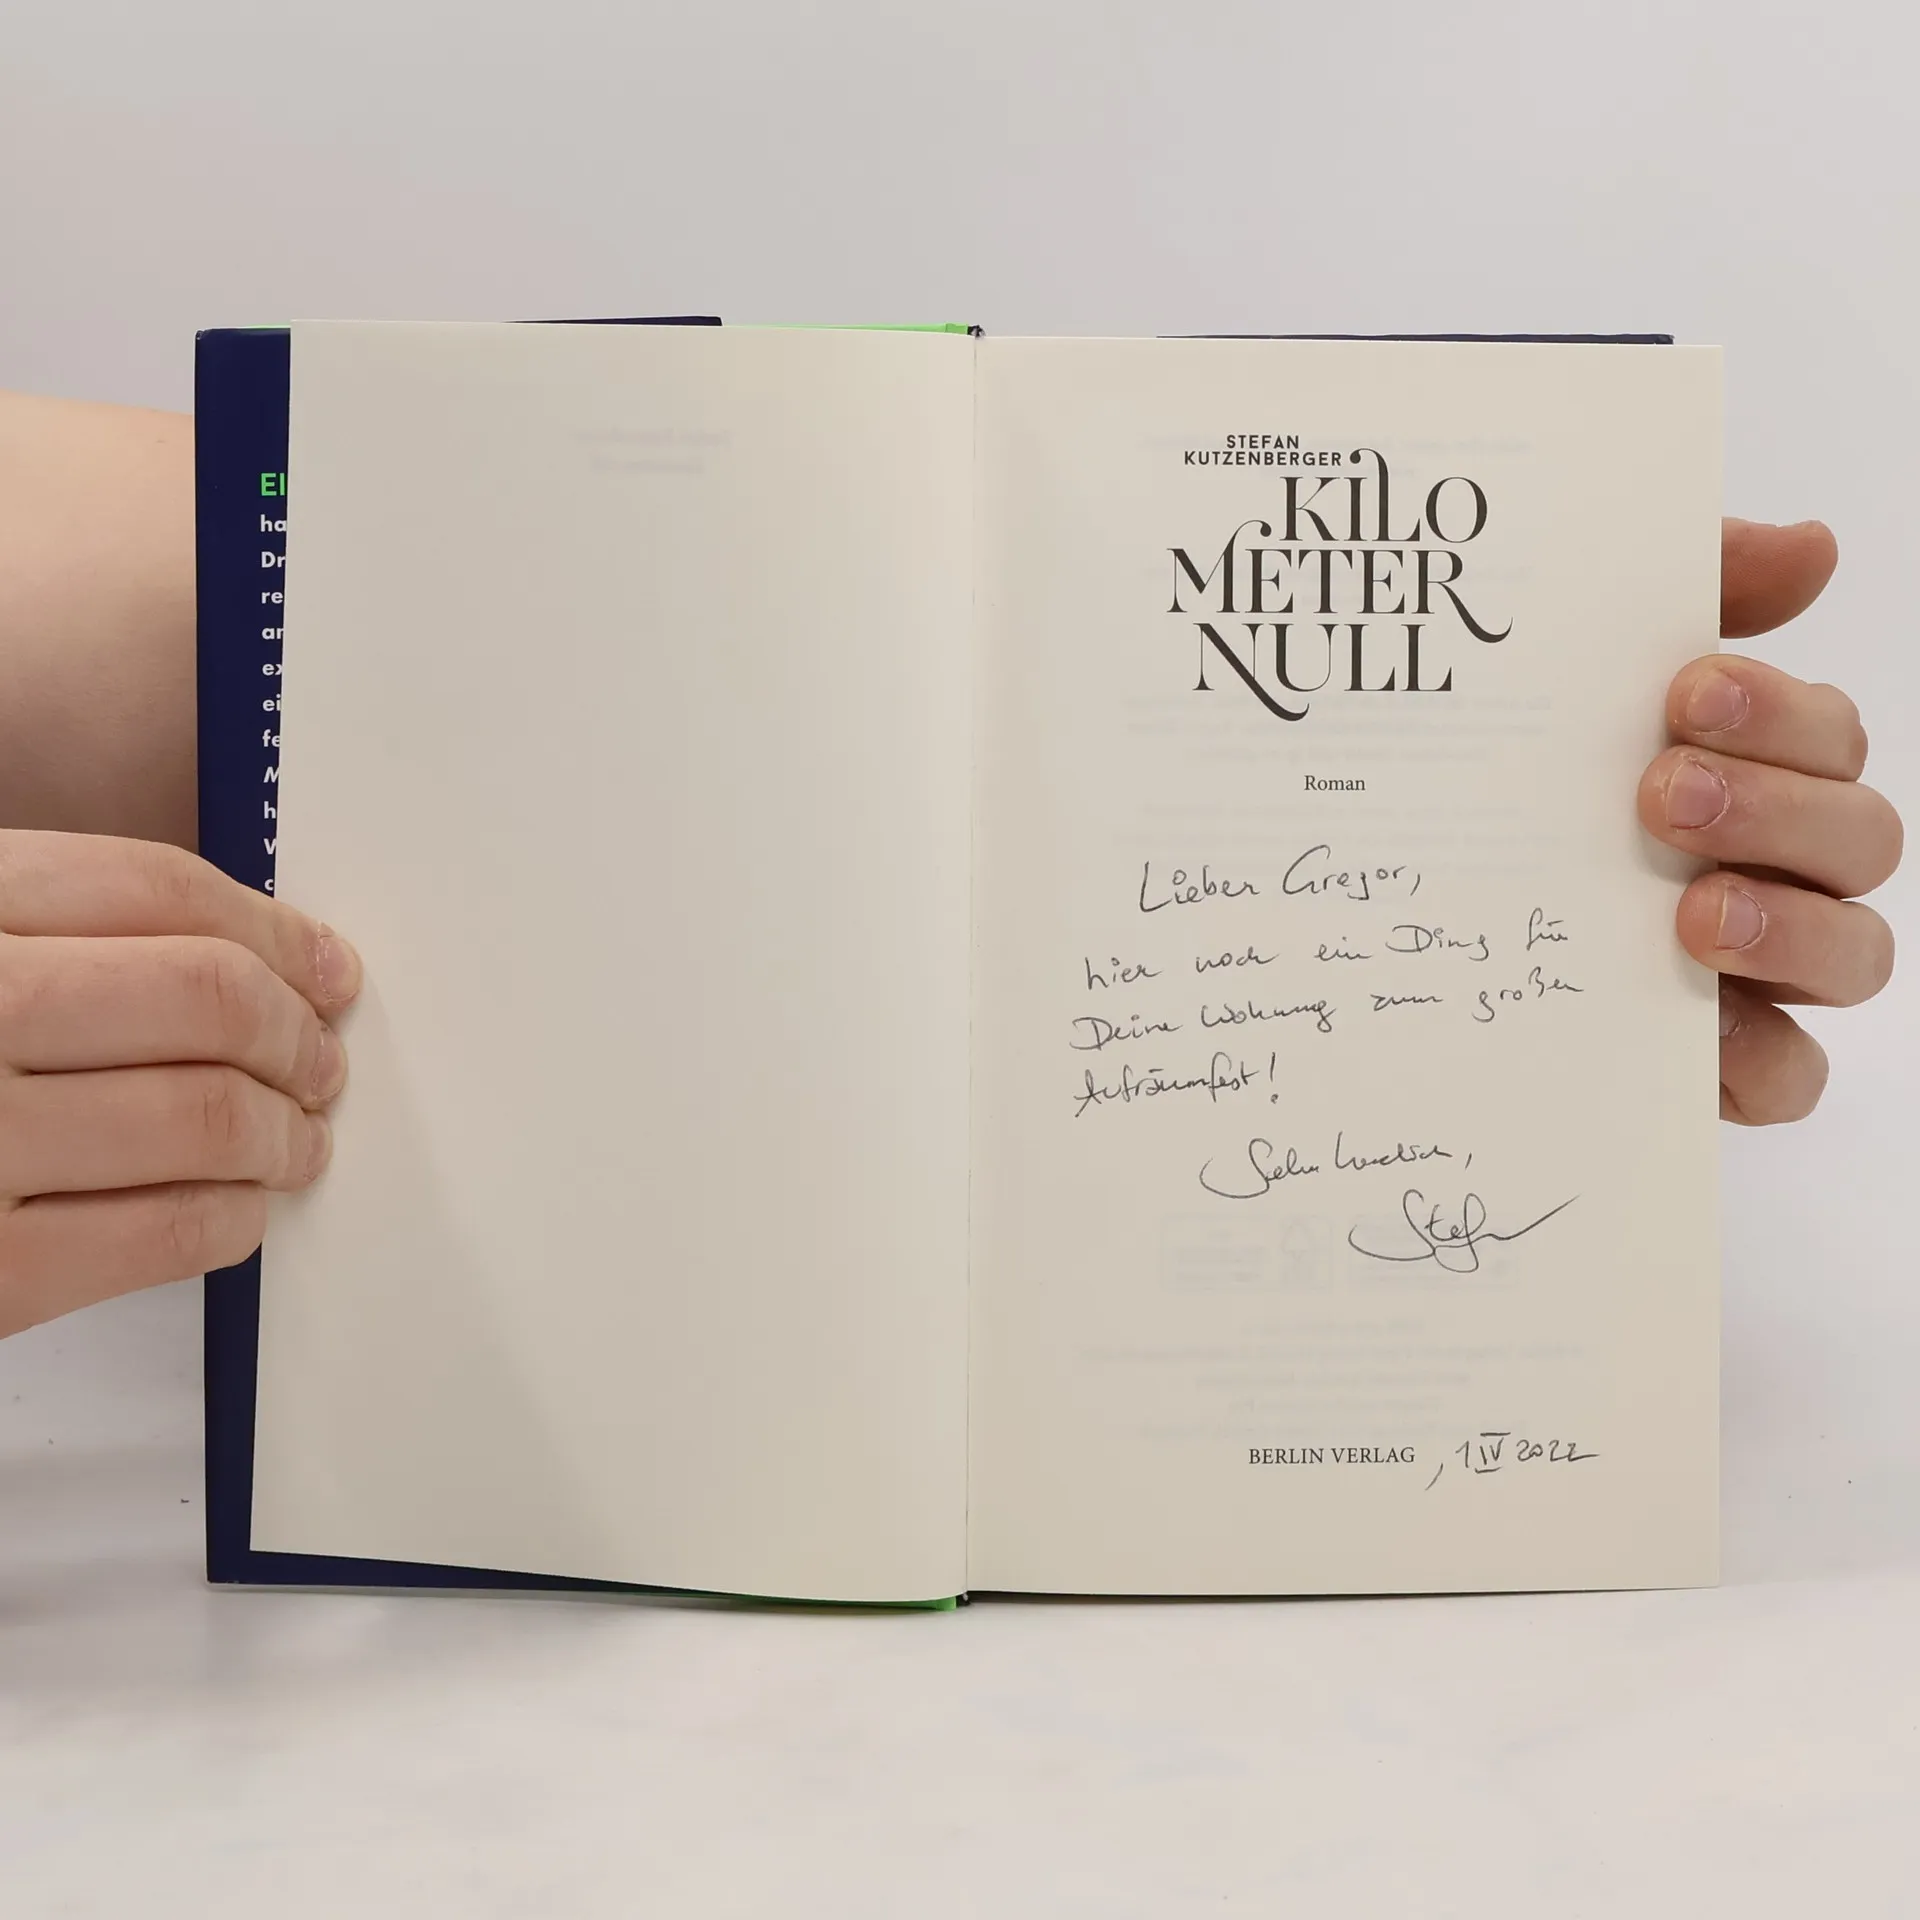 El
ha
Dr
re
an
ex
ei
fe
M
h
V
c
STEFAN
KUTZENBERGER
KILO
METER
NULL
Roman
Lieber Gregor,
hier noch ein Ding für
Deine Wohnung zum großen
Aufräumfest!
Sehr herzlich,
Stefan
BERLIN VERLAG , 1 IV 2022